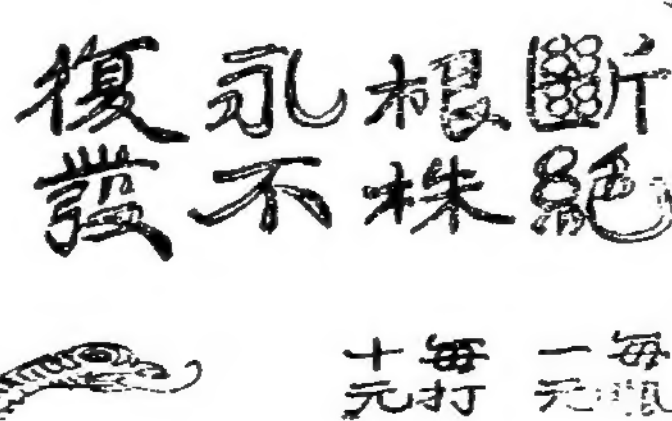 斷絕
根株
永不
復發
每瓶
一元
每打
十元